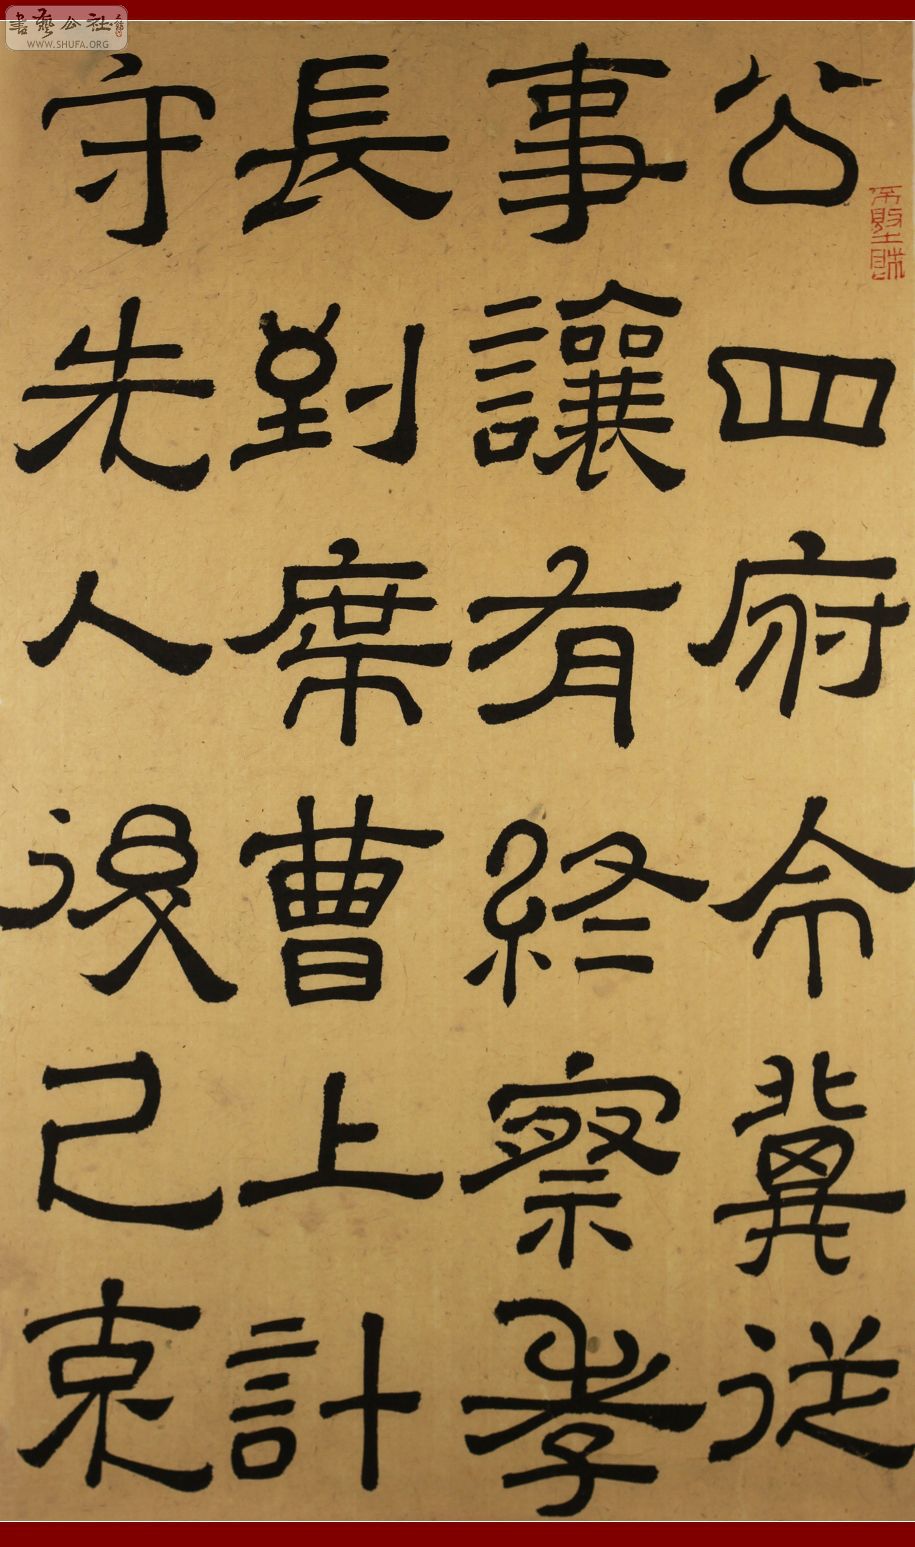 書藝公社
WWW.SHUFA.ORG
公四府令冀從
事讓有終察孝
長到席曹上計
守先人後己克